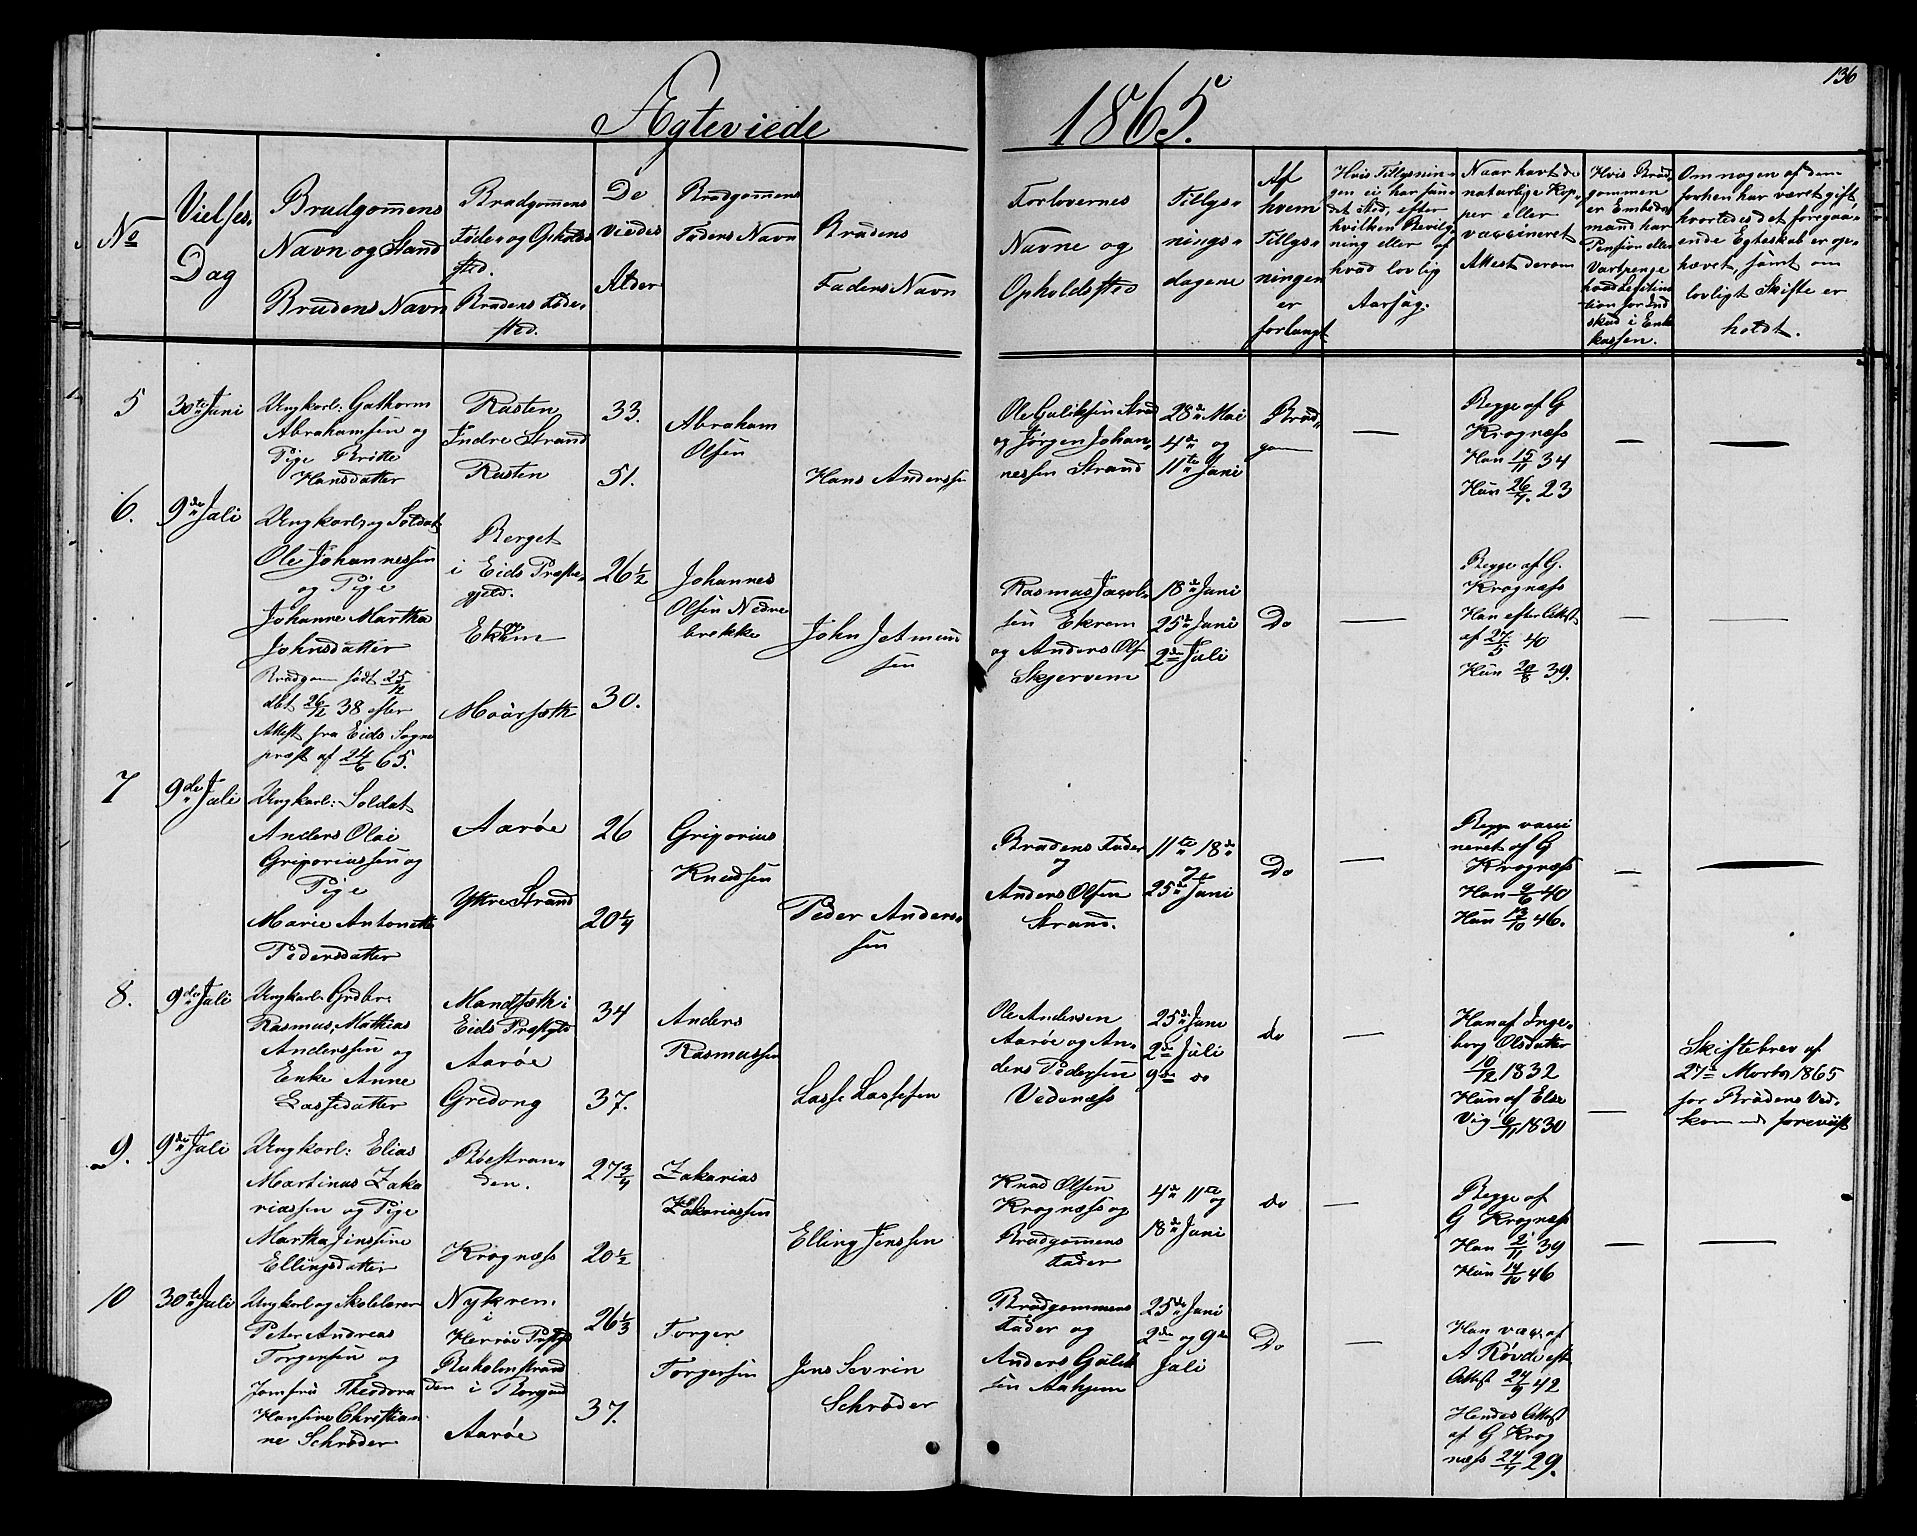 136
Ægteviede
1865.
No
Vielses
Dag
Brudgommens
Navn og Stand
Brudens Navn
Brudgommens
Føde og Opholds
sted.
Brudens Føde
sted.
De
viedes
Alder
Brudgommens
Faders Navn
Brudens
Faders Navn
Forlovernes
Navne og
Opholdssted
Tillys-
nings-
dagene
Af
hvem
Tillys-
ningen
er
forlangt
Hvis Tillysnin-
gen ei har fun-
det Sted, efter
hvilken Bevilg
ning eller af
hvad lovlig
Aarsag.
Naar havt de
naturlige Kop-
per eller
vaccineret
Attest derom
Hvis Brud-
gommen
er Embeds-
mand har
Pension eller
for Ind
skud i Enke
kassen.
Om nogen af dem
forhen har været gift,
hvorledes det foregaa-
ende Egteskab er op-
hævet, samt om
lovligt Skifte er
holdt.
5
30te Juni
Ungkarl: Guthorm
Abrahamsen og
Pige Britte
Hansdatter
Rusten
Indre Strand
Rusten
33.
51.
Abraham
Olsen
Hans Anderssen
Ole Guliksen Strand
og Jørgen Johan-
nessen Strand
28de Mai
4de og
11te Juni
Brud-
gom
—
Begge af G
Krognæss
Han 15/11 34
Hun 26/7. 23
—
—
6.
9de Juli
Ungkarl og Soldat
Ole Johannessen
og Pige
Johanne Martha
Johnsdatter
Brudgom født 25/12
dbt 26/12 38 efter
Attest fra Eids Sogne
præst af 24/6 65.
Berget
i Eids Præste-
gjeld.
Ekrem
Maarsæth
26 1/2
30.
Johannes
Olsen Nedre
brekke
John Jetmun
sen
Rasmus Jacob-
sen Ekrem
og Anders Ols
Skjervem
18de Juni
25de Juni
2den Juli
Do
—
Begge af G.
Krognæss
Han efter Attest
af 27/5 40
Hun 20/8 39.
—
—
7
9de Juli
Ungkarl: Soldat
Anders Olai
Grigoriassen og
Pige
Marie Antonette
Pedersdatter
Aarøe
Ytre Strand
26
20 1/4
Grigorius
Knudsen
Peder Anders-
sen
Brudens Fader
og
Anders Olsen
Strand.
11te 18de
og
25de Juni
Do
—
Begge vacci
neret af G
Krognæss
Han 2/6 40
Hun 13/10 46.
—
—
8.
9de Juli
Ungkarl. Grdbr.
Rasmus Mathias
Anderssen og
Enke Anne
Lassedatter
Mandsæth i
Eids Præstgld
Aarøe
Gredong
34
37.
Anders
Rasmussen
Lasse Lassesen
Ole Andersen
Aarøe og An-
ders Pedersen
Vedenæss
25de Juni
2de Juli
9de do
do
—
Han af Inge-
borg Olsdatter
10/12 1832
Hun af Else
Vig 6/11 1830
—
Skiftebrev af
27de Marts 1865
for Brudens Ved-
kommende foreviist
9.
9de Juli
Ungkarl: Elias
Martinus Zaka
riassen og Pige
Martha Jenssine
Ellingsdatter
Røestran-
den.
Krognæss
27 3/4
20 1/2
Zakarias
Zakariassen
Elling Jenssen
Knud Olsen
Krognæss og
Brudgommens
Fader
4de 11te
og
18de Juni
do
—
Begge af
G Krognæss
Han 2/11 39
Hun 14/10 46
—
—
10
30te Juli
Ungkarl og Skolelærer
Peter Andreas
Torgersen og
Jomfru Theodora
Hansine Christian
ne Schrøder
Nykren.
i
Herrøe Præstgd
den i Borgund
Aarøe
26 1/3
37.
Torger
Torgersen
Jens Sevrin
Schrøder
Brudgommens
Fader og
Anders Gulik
sen Aahjem
25de Juni
2de og 9de
Juli
Do
—
Han vacc. af
A Røvde eft
Attest 24/9 42
Hendes Attest
af G Krog
næss 24/7 29.